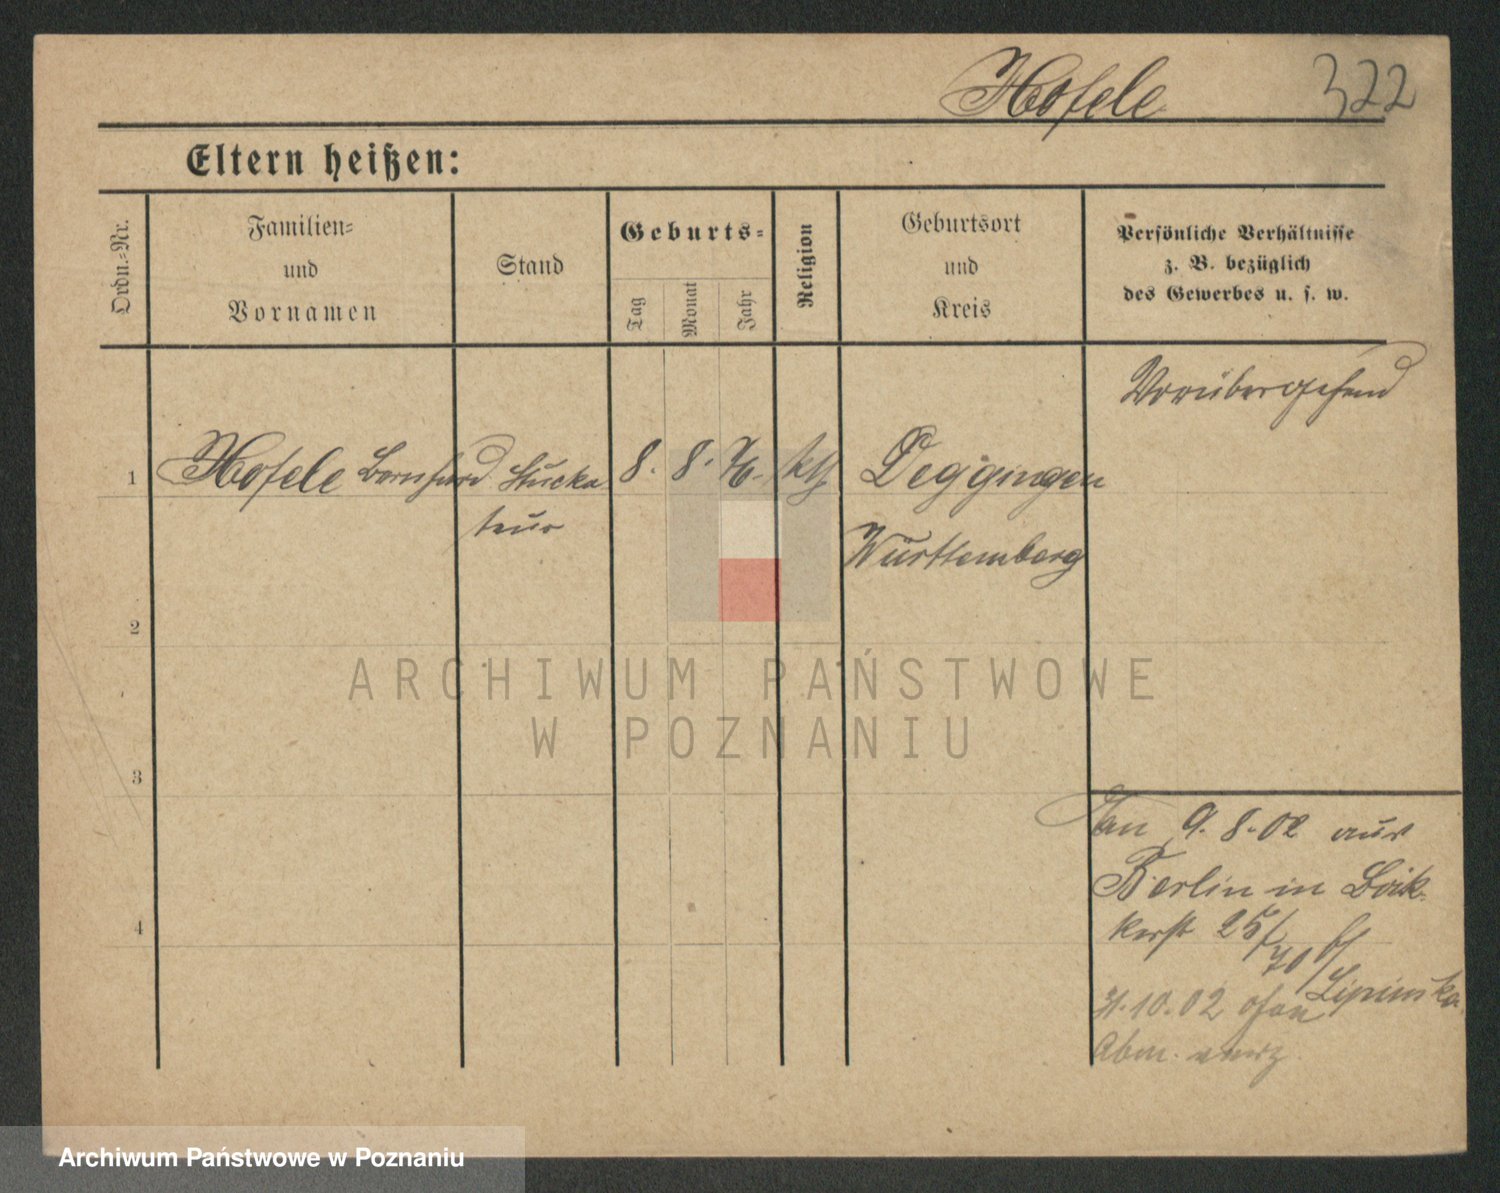 Hofele 322
Eltern heißen:
Ordn.-Nr.
Familien-
und
Vornamen
Stand
Geburts-
Tag
Monat
Jahr
Religion
Geburtsort
und
Kreis
Persönliche Verhältnisse
z. B. bezüglich
des Gewerbes u. s. w.
Vorübergehend
1 Hofele Bernhard Stucka 8. 8. 76. kth Deggingen
teur Württemberg
2
3
4
an 9. 8. 02 aus
Berlin in Bäk-
kerst 25/
70 b/
Lipinska
10.02 ohne
Abm. verz.
ARCHIWUM PAŃSTWOWE
W POZNANIU
Archiwum Państwowe w Poznaniu